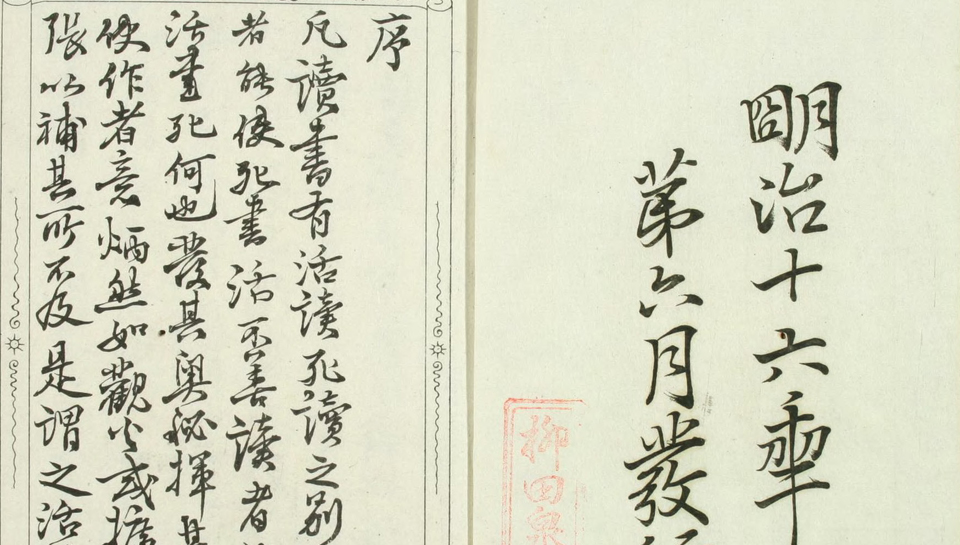 明治十六年
第六月發
柳田泉
序
凡讀書有活讀死讀之别
者能使死書活不善讀者
活書死何也發其奥秘揮其
使作者意炳然如觀火或擴
張以補其所不及是謂之活